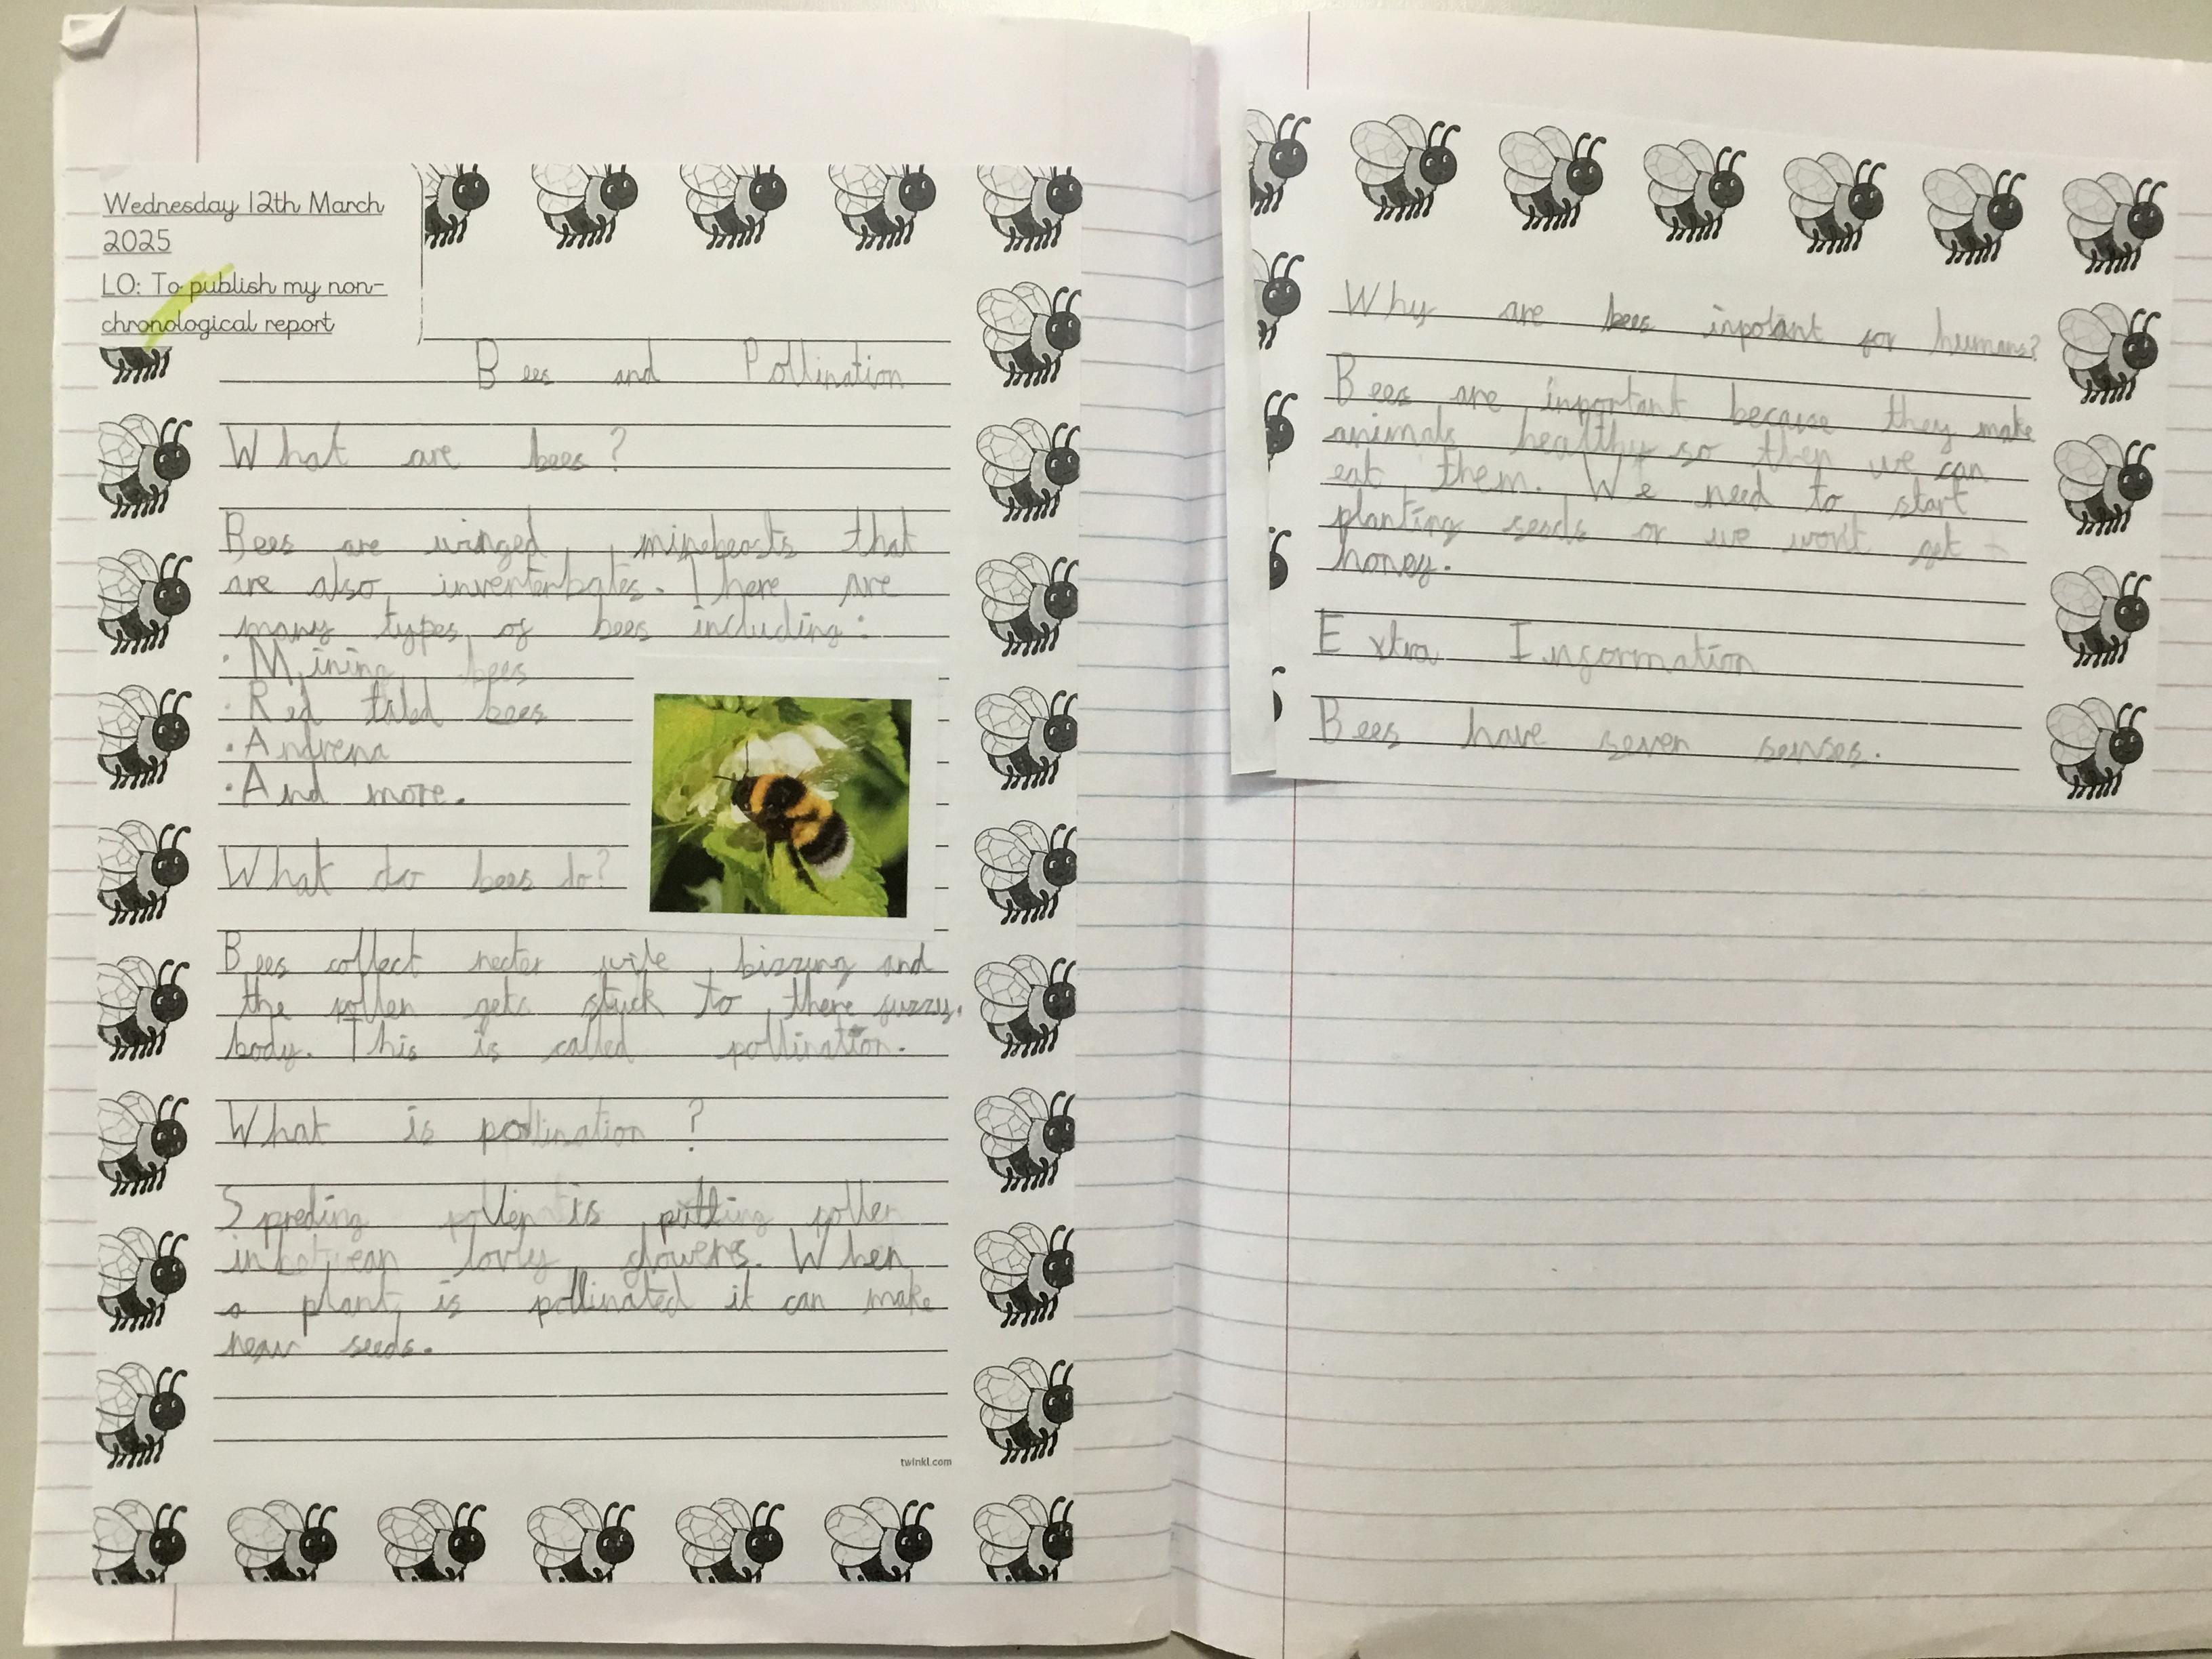 Wednesday 12th March
2025
LO: To publish my non-
chronological report
Bees and Pollination
What are bees?
Bees are winged minebeasts that
are also inverterbates. There are
many types of bees including:
· Mining bees
· Red taled bees
· Andrena
· And more.
What do bees do?
Bees collect necter wile bizzing and
the pollen gets stuck to there fuzzy.
body. This is called pollination.
What is pollination ?
Spreding pollen is putting pollen
inbetwean lovly flowers. When
a plant is pollinated it can make
new seeds.
twinkl.com
Why are bees inpotant for humans?
Bees are inportant because they make
animals healthy so then we can
eat them. We need to start
planting seeds or we won't get
honey.
Extra Information
Bees have seven senses.